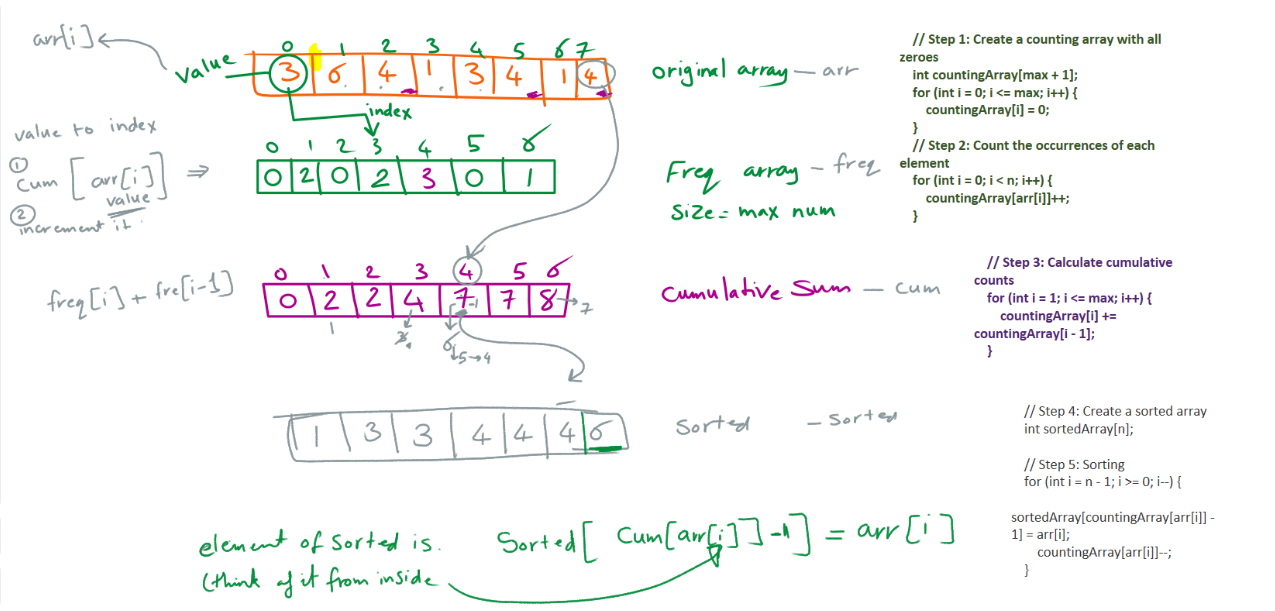 arr[i]
0 1 2 3 4 5 6 7
value
3 6 4 1 3 4 1 4
original array — arr
index
value to index
① Cum [ arr[i] ] ⇒
value
② increment it.
0 1 2 3 4 5 6
0 2 0 2 3 0 1
Freq array — freq
Size = max num
freq[i] + fre[i-1]
0 1 2 3 4 5 6
0 2 2 4 7 7 8 → 7
-1
1
3
6
↓5→4
Cumulative Sum — cum
1 3 3 4 4 4 6
Sorted — Sorted
element of Sorted is.
Sorted [ Cum[arr[i]] -1 ] = arr[i]
(think of it from inside
// Step 1: Create a counting array with all
zeroes
int countingArray[max + 1];
for (int i = 0; i <= max; i++) {
countingArray[i] = 0;
}
// Step 2: Count the occurrences of each
element
for (int i = 0; i < n; i++) {
countingArray[arr[i]]++;
}
// Step 3: Calculate cumulative
counts
for (int i = 1; i <= max; i++) {
countingArray[i] +=
countingArray[i - 1];
}
// Step 4: Create a sorted array
int sortedArray[n];
// Step 5: Sorting
for (int i = n - 1; i >= 0; i--) {
sortedArray[countingArray[arr[i]] -
1] = arr[i];
countingArray[arr[i]]--;
}